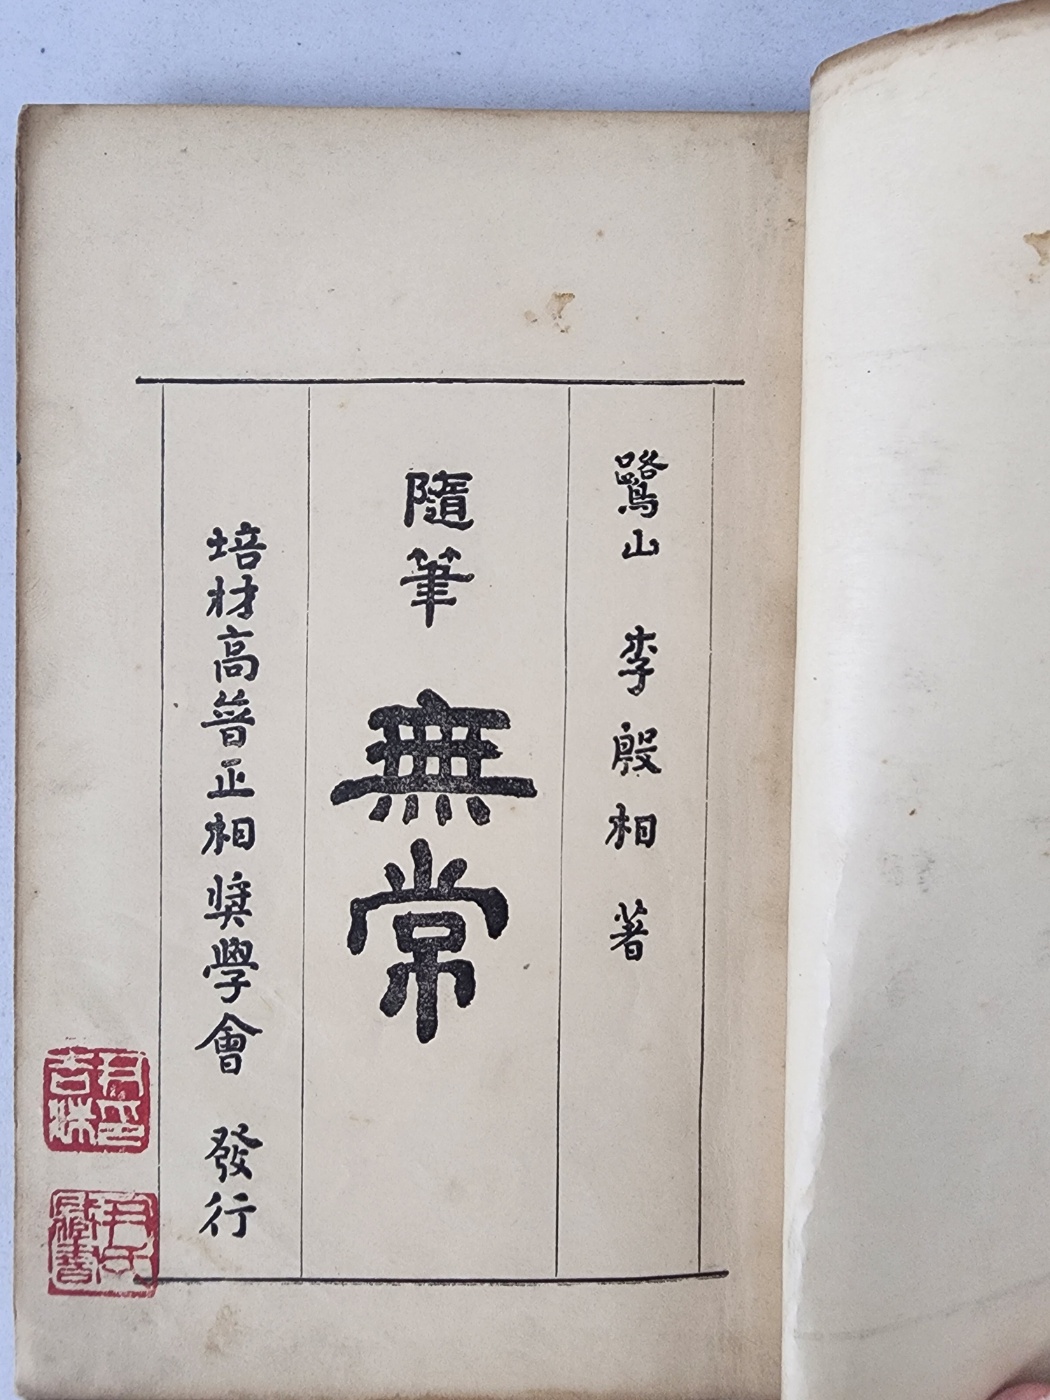 鷺山 李殷相 著
隨筆 無常
培材高普正相奬學會 發行